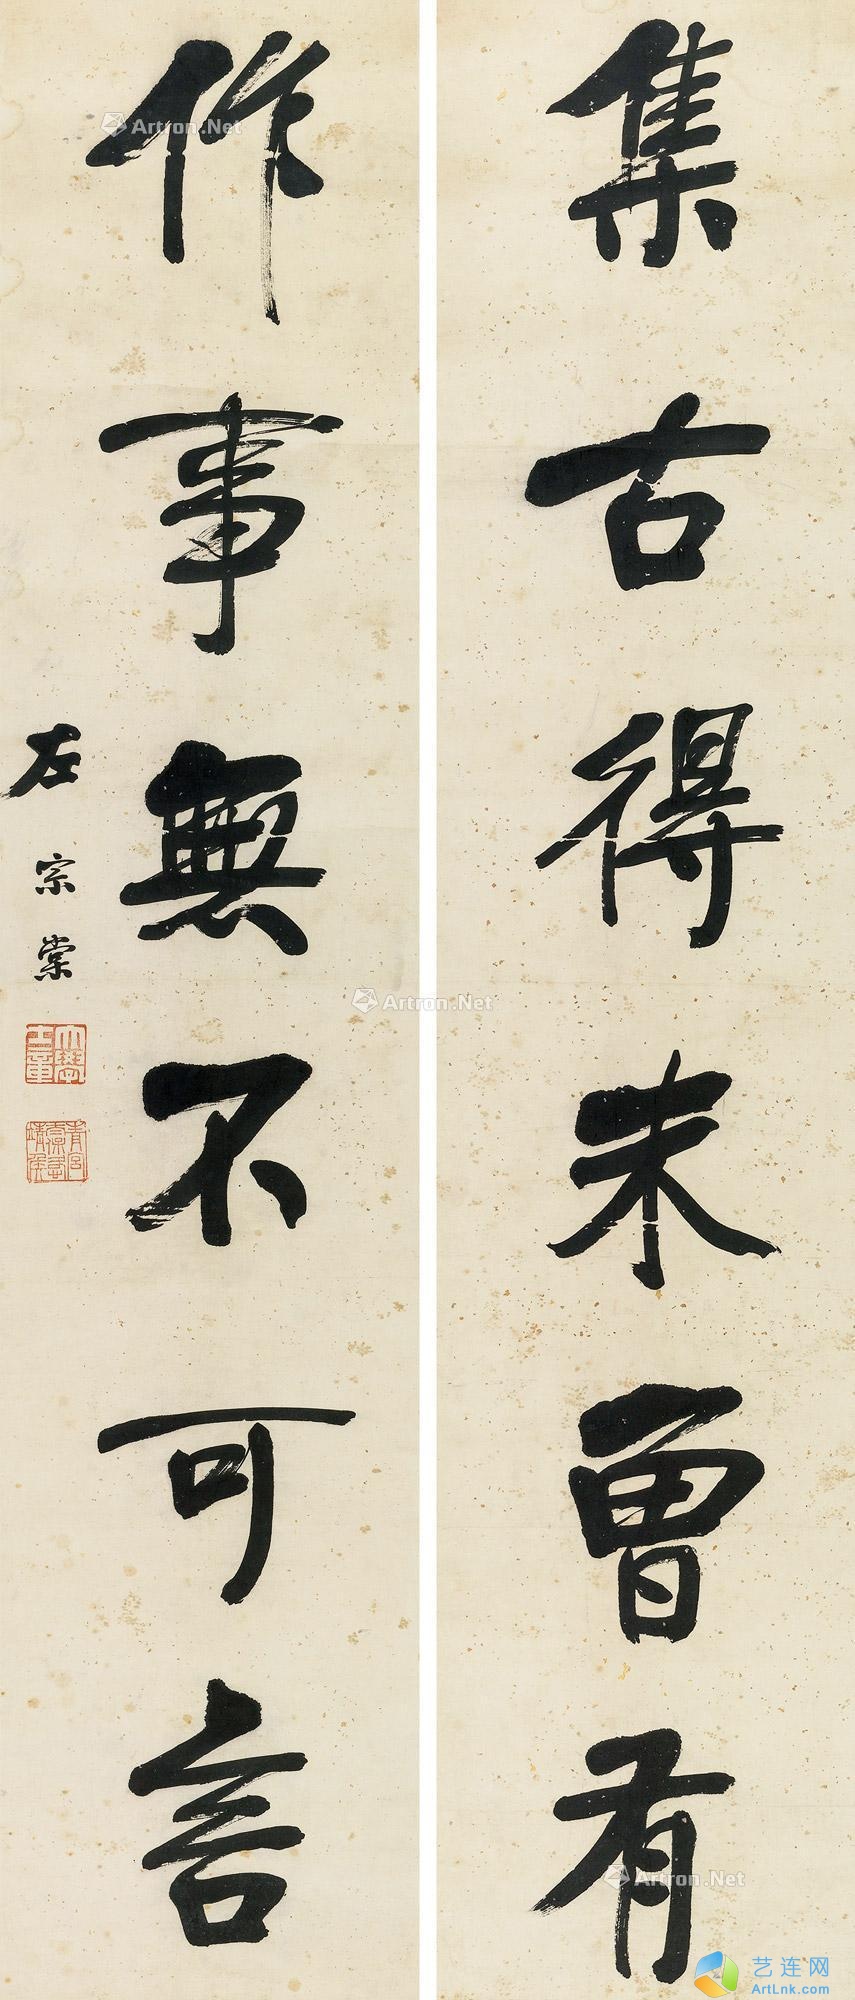 集古得未曾有
作事無不可言
左宗棠
大學士章
青宮太保恪靖侯
Artron.Net
Artron.Net
Artron.Net
艺连网
ArtLnk.com